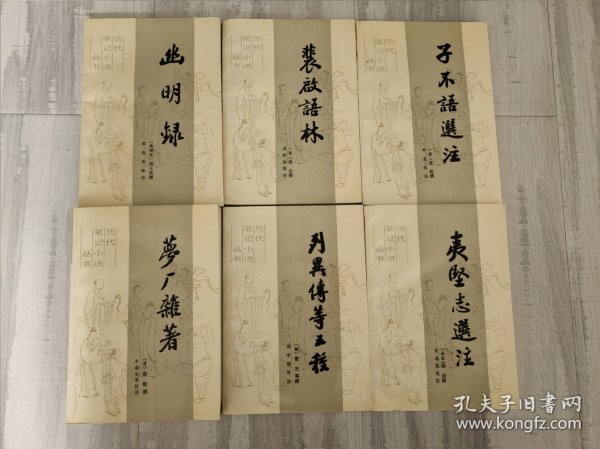 历代
笔记小说
丛书
幽明録
历代
笔记小说
丛书
裴啟語林
历代
笔记小说
丛书
子不語選注
历代
笔记小说
丛书
夢厂雜著
历代
笔记小说
丛书
列異傳等五種
历代
笔记小说
丛书
夷堅志選注
孔夫子旧书网
www.kongfz.com